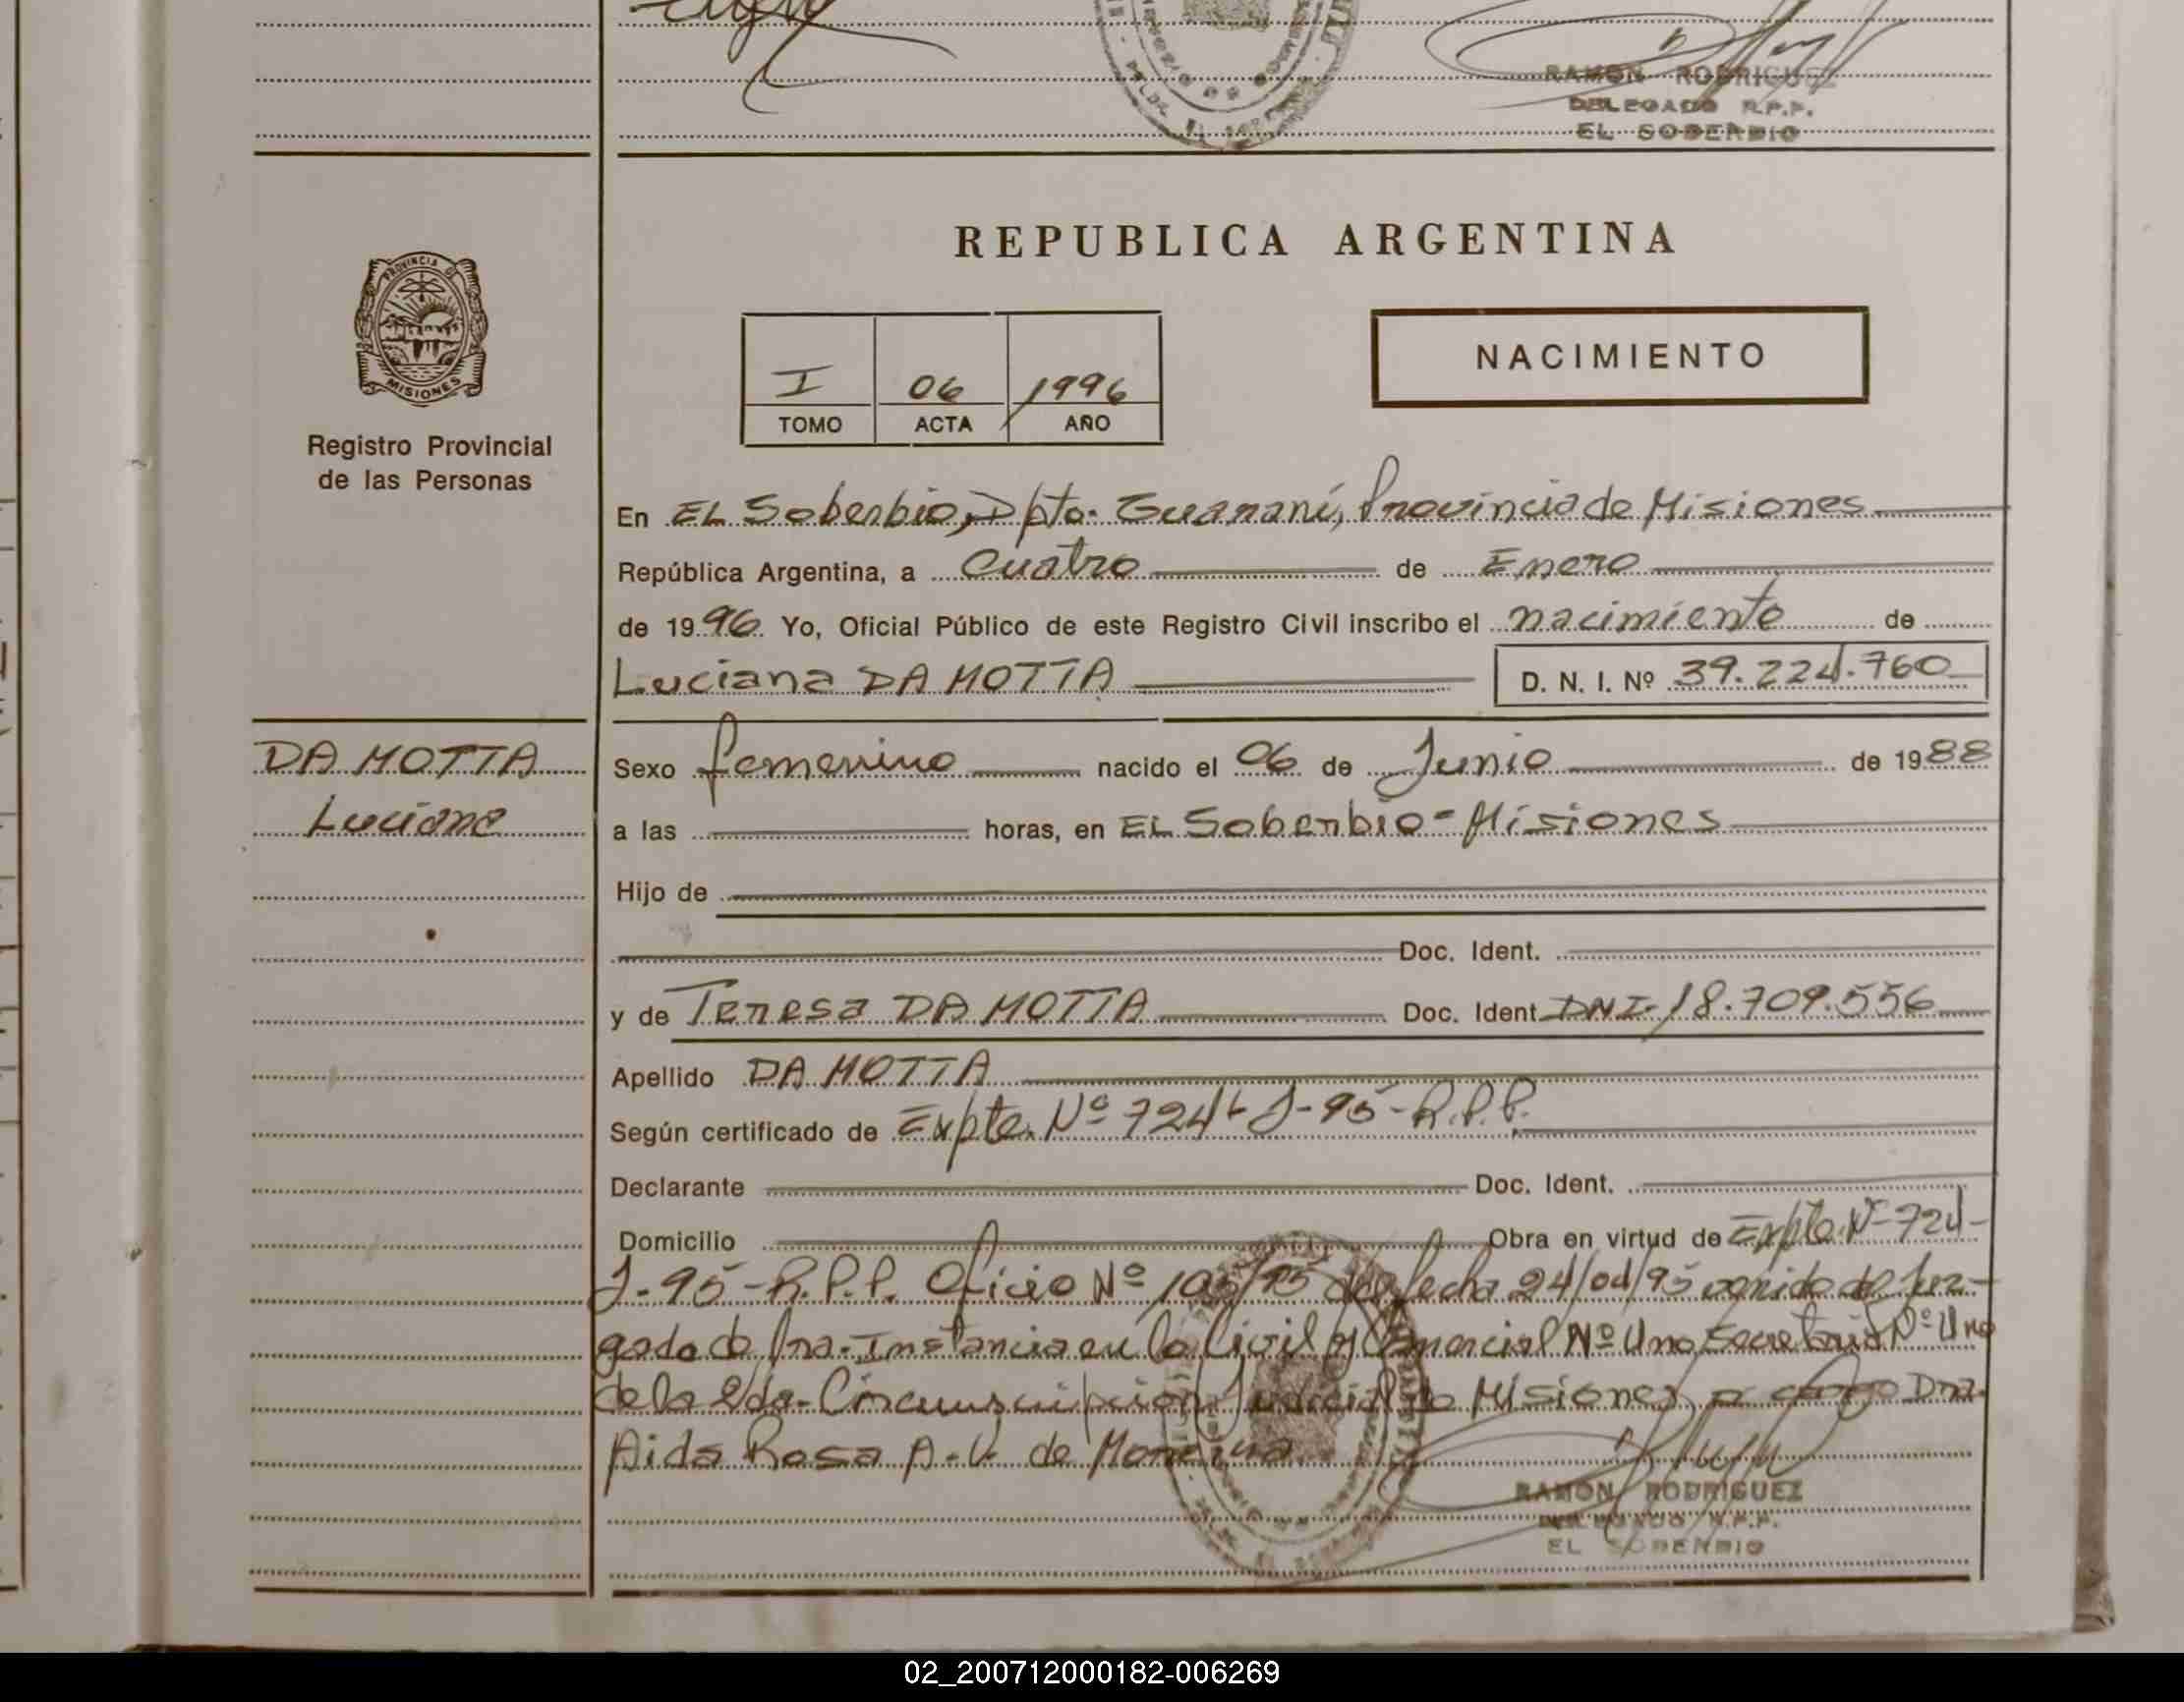 RAMON RODRIGUEZ
DELEGADO R.P.P.
EL SOBERBIO
REPUBLICA ARGENTINA
PROVINCIA DE
MISIONES
NACIMIENTO
I 06 1996
TOMO ACTA AÑO
Registro Provincial
de las Personas
En EL Soberbio, Dpto. Guaraní, Provincia de Misiones
República Argentina, a Cuatro de Enero
de 1996. Yo, Oficial Público de este Registro Civil inscribo el nacimiento de
Luciana DA MOTTA D. N. I. Nº 39.224.760
DA MOTTA
Luciana
Sexo femenino nacido el 06 de Junio de 1988
a las horas, en EL Soberbio - Misiones
Hijo de
Doc. Ident.
y de Teresa DA MOTTA Doc. Ident DNI. 18.709.556
Apellido DA MOTTA
Según certificado de Expte. Nº 724-J-95-R.P.P.
Declarante Doc. Ident.
Domicilio Obra en virtud de Expte. Nº 724-
J-95-R.P.P. Oficio Nº fecha 24/04/95 venido de Juz-
gado de Pra. Instancia en lo Civil y Comercial Nº Uno Secretaria Nº Uno
de la 2da. Circunscripcion Judicial de Misiones a cargo Dra.
Aida Rosa A. V. de Moreira
RAMON RODRIGUEZ
DELEGADO R.P.P.
EL SOBERBIO
02_200712000182-006269